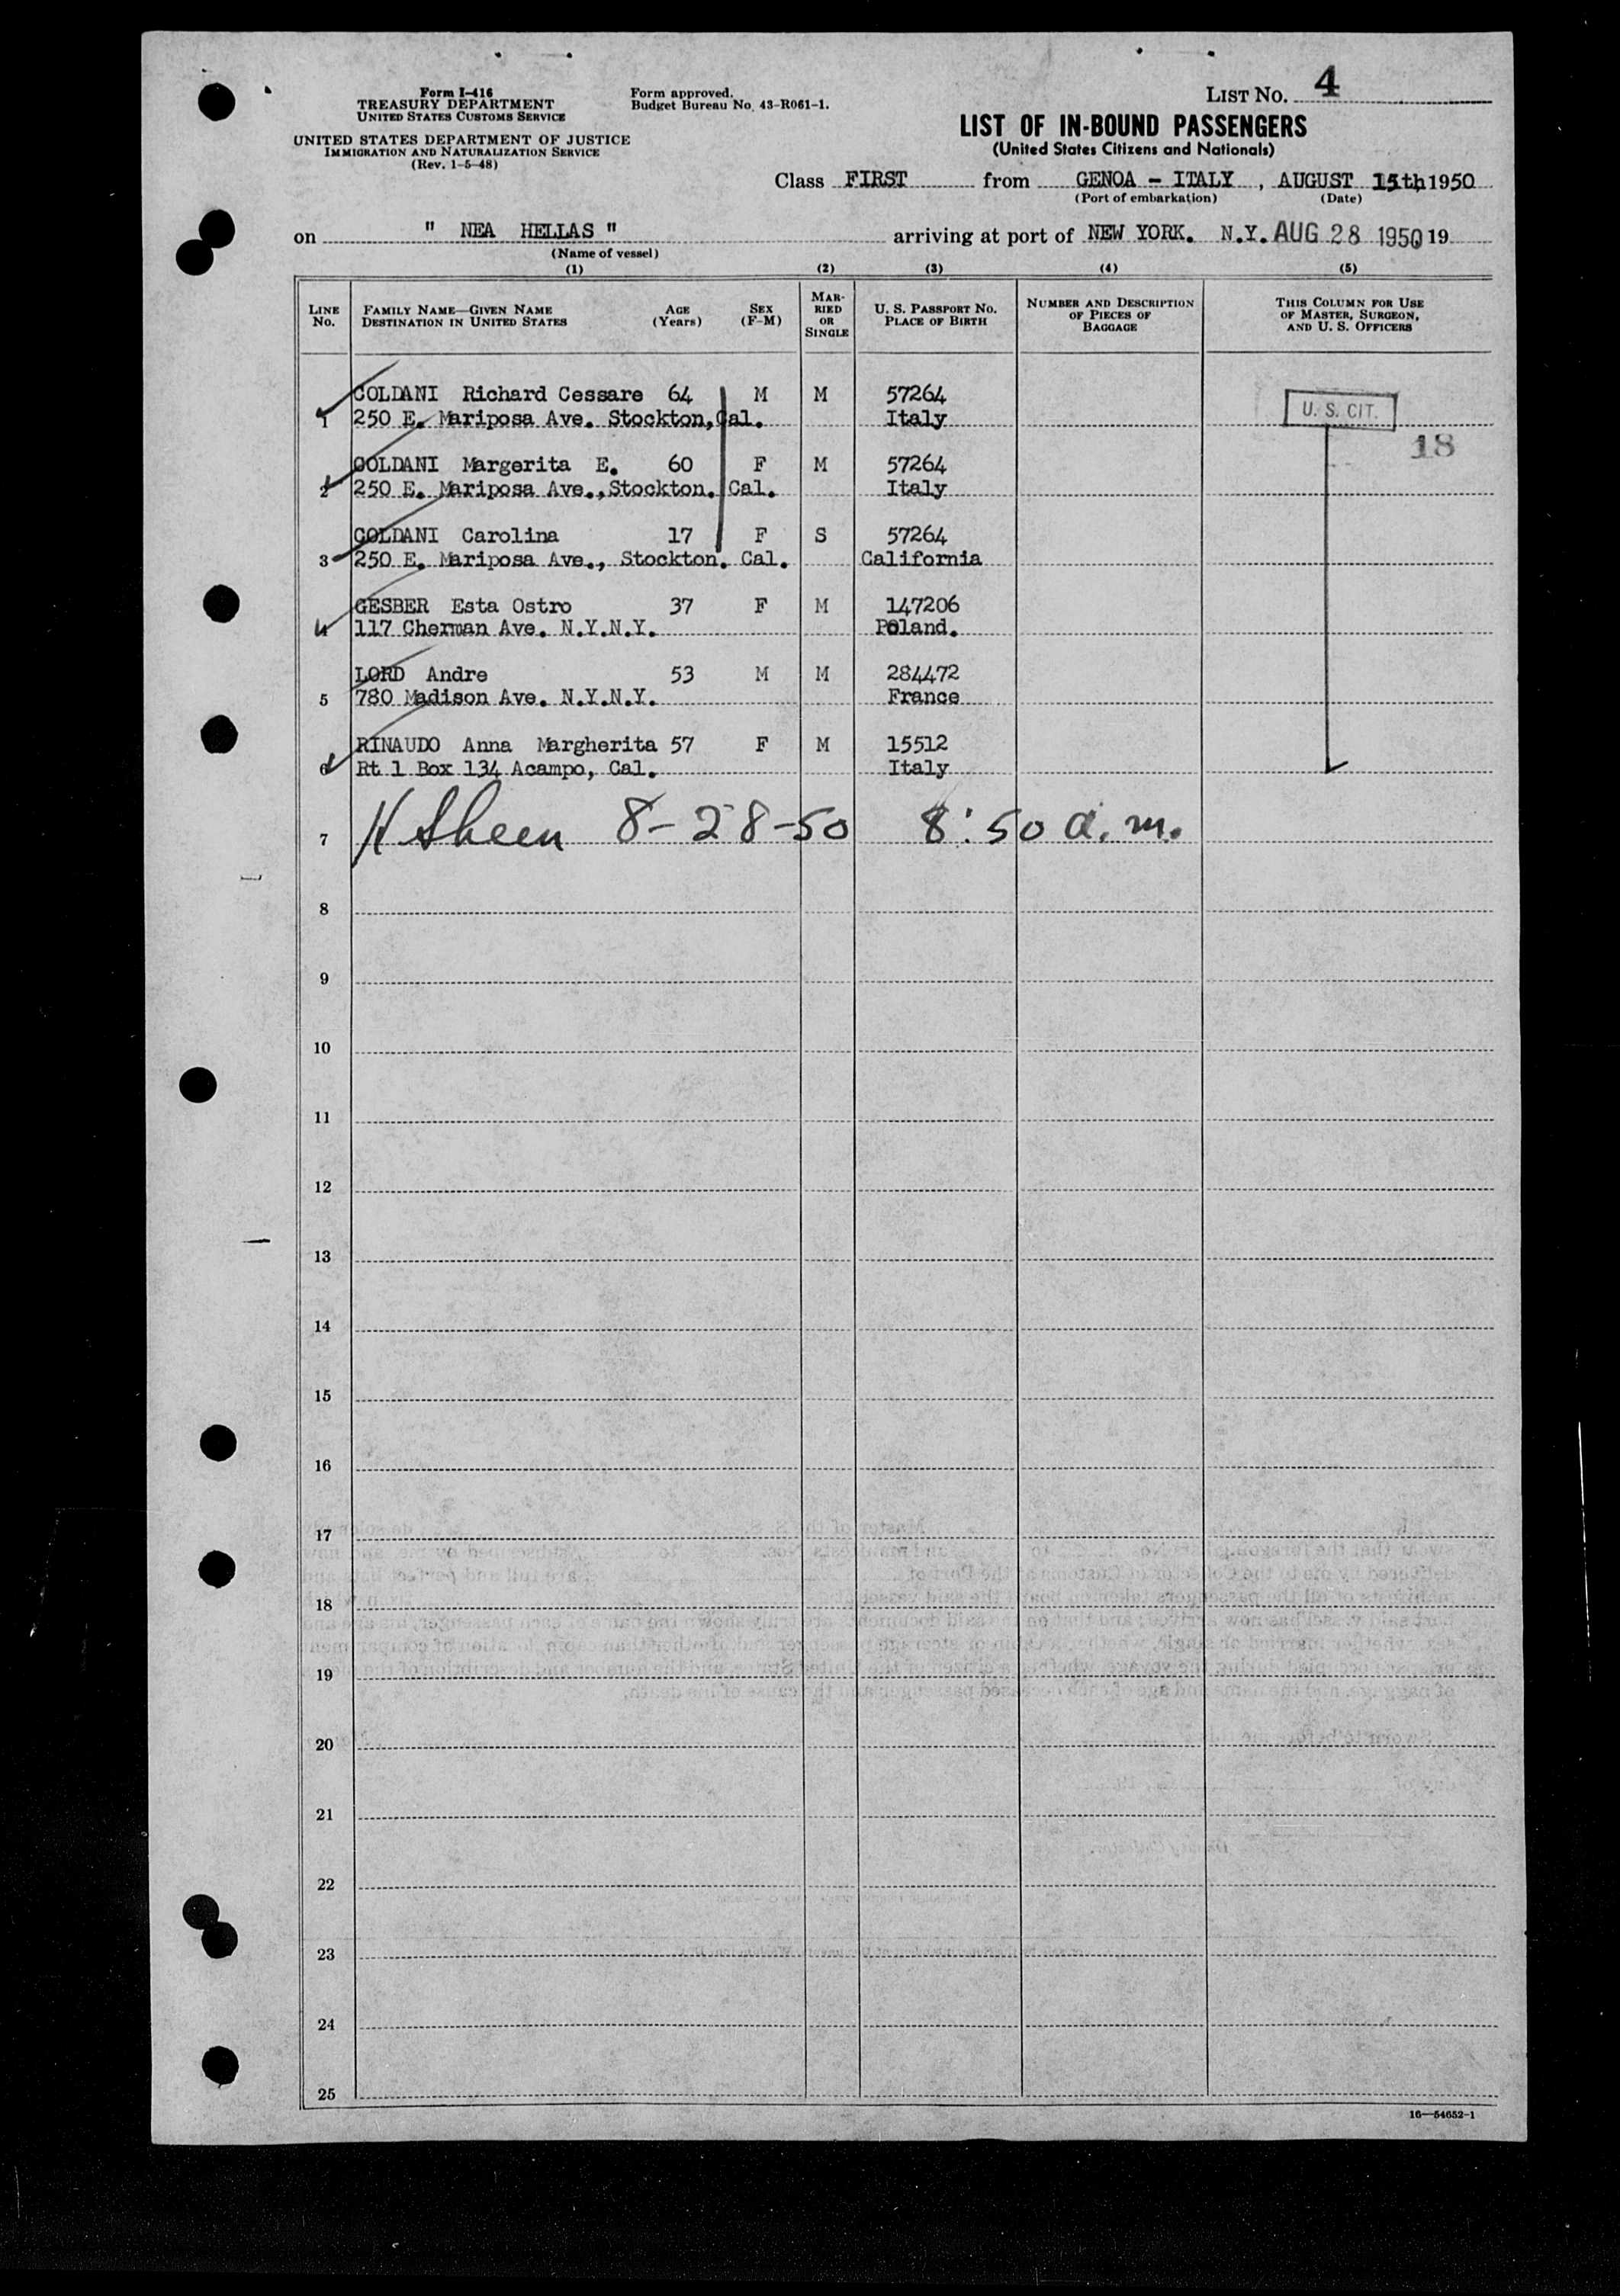 Form I-416
TREASURY DEPARTMENT
UNITED STATES CUSTOMS SERVICE
UNITED STATES DEPARTMENT OF JUSTICE
IMMIGRATION AND NATURALIZATION SERVICE
(Rev. 1-5-48)
Form approved.
Budget Bureau No. 43-R061-1.
LIST NO. 4
LIST OF IN-BOUND PASSENGERS
(United States Citizens and Nationals)
Class FIRST from GENOA - ITALY, AUGUST 15th 1950
(Port of embarkation) (Date)
on " NEA HELLAS " arriving at port of NEW YORK. N.Y. AUG 28 1950 19
(Name of vessel)
(1) (2) (3) (4) (5)
LINE NO. FAMILY NAME—GIVEN NAME DESTINATION IN UNITED STATES AGE (Years) SEX (F-M) MARRIED OR SINGLE U. S. PASSPORT NO. PLACE OF BIRTH NUMBER AND DESCRIPTION OF PIECES OF BAGGAGE THIS COLUMN FOR USE OF MASTER, SURGEON, AND U. S. OFFICERS
COLDANI Richard Cessare 64 M M 57264
1 250 E. Mariposa Ave. Stockton, Cal. Italy U. S. CIT.
18
COLDANI Margerita E. 60 F M 57264
2 250 E. Mariposa Ave., Stockton. Cal. Italy
COLDANI Carolina 17 F S 57264
3 250 E. Mariposa Ave., Stockton. Cal. California
GESBER Esta Ostro 37 F M 147206
4 117 Cherman Ave. N.Y.N.Y. Poland.
LORD Andre 53 M M 284472
5 780 Madison Ave. N.Y.N.Y. France
RINAUDO Anna Margherita 57 F M 15512
6 Rt 1 Box 134 Acampo, Cal. Italy
7 H Sheen 8-28-50 8:50 a.m.
8
9
10
11
12
13
14
15
16
17
18
19
20
21
22
23
24
25
16—54652-1